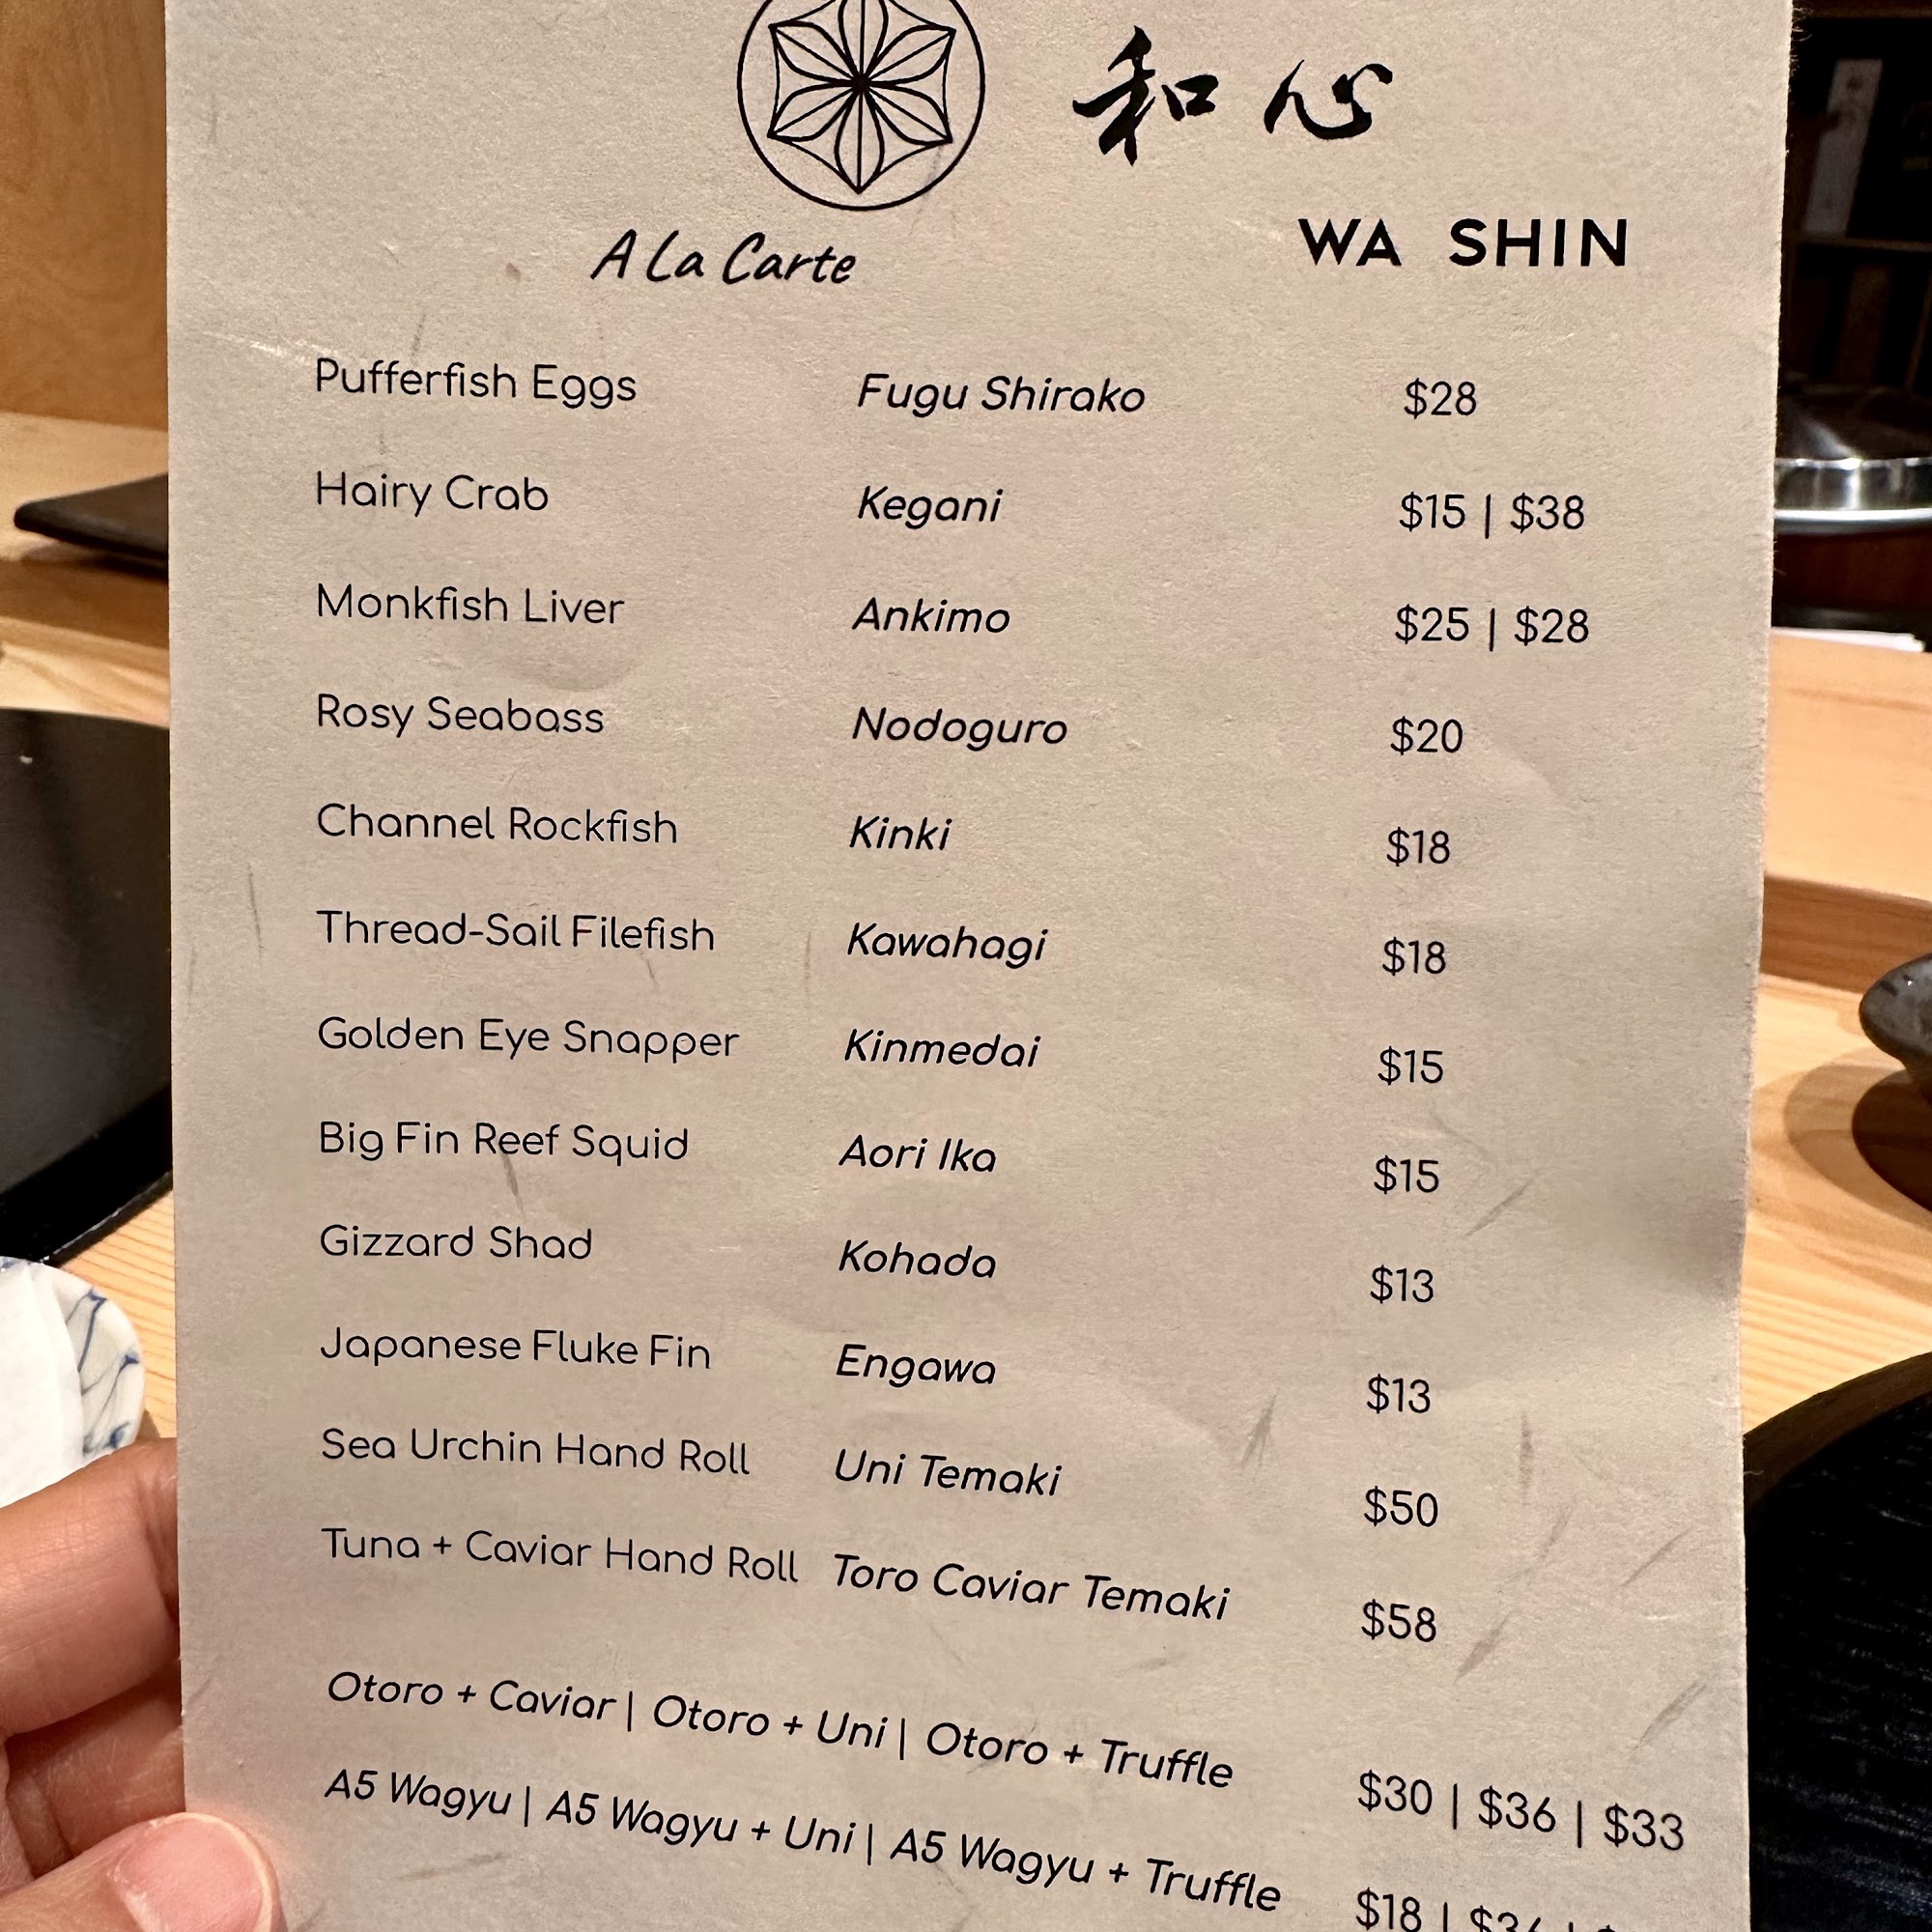 和心
WA SHIN
A La Carte
Pufferfish Eggs Fugu Shirako $28
Hairy Crab Kegani $15 | $38
Monkfish Liver Ankimo $25 | $28
Rosy Seabass Nodoguro $20
Channel Rockfish Kinki $18
Thread-Sail Filefish Kawahagi $18
Golden Eye Snapper Kinmedai $15
Big Fin Reef Squid Aori Ika $15
Gizzard Shad Kohada $13
Japanese Fluke Fin Engawa $13
Sea Urchin Hand Roll Uni Temaki $50
Tuna + Caviar Hand Roll Toro Caviar Temaki $58
Otoro + Caviar | Otoro + Uni | Otoro + Truffle $30 | $36 | $33
A5 Wagyu | A5 Wagyu + Uni | A5 Wagyu + Truffle $18 |